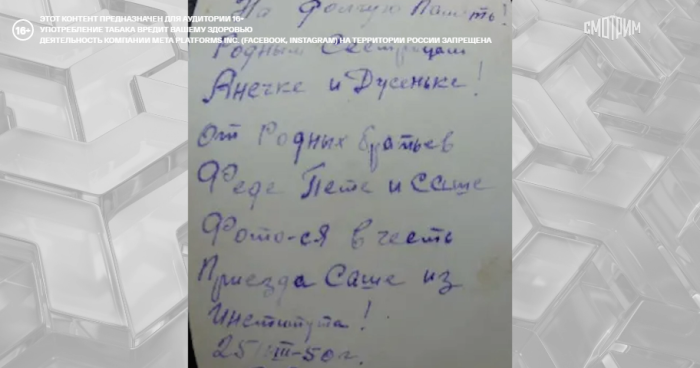 16+
ЭТОТ КОНТЕНТ ПРЕДНАЗНАЧЕН ДЛЯ АУДИТОРИИ 16+
УПОТРЕБЛЕНИЕ ТАБАКА ВРЕДИТ ВАШЕМУ ЗДОРОВЬЮ
ДЕЯТЕЛЬНОСТЬ КОМПАНИИ META PLATFORMS INC. (FACEBOOK, INSTAGRAM) НА ТЕРРИТОРИИ РОССИИ ЗАПРЕЩЕНА
СМОТРИМ
На Долгую Память!
Родным Сестрицам
Анечке и Дусеньке!
От Родных братьев
Феде Пете и Саше
Фото-ся в честь
Приезда Саше из
Института!
25/VIII-50 г.